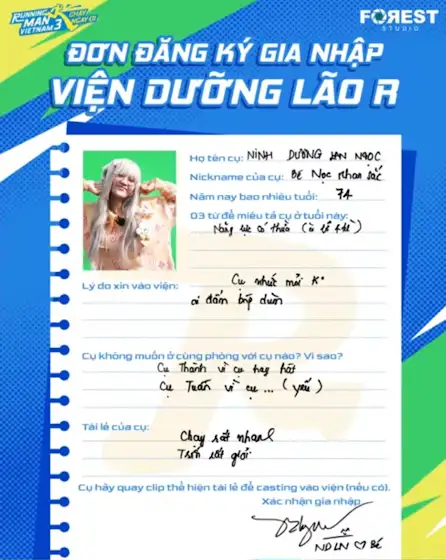 RUNNING
MAN
VIETNAM 3
CHẠY
NGAY ĐI
FOREST
STUDIO
ĐƠN ĐĂNG KÝ GIA NHẬP
VIỆN DƯỠNG LÃO R
Họ tên cụ: NINH DƯƠNG LAN NGỌC
Nickname của cụ: BÉ Ngọc nhan sắc
Năm nay bao nhiêu tuổi: 74
03 từ để miêu tả cụ ở tuổi này:
Năng lực có thừa
Lý do xin vào viện:
Cụ nhức mỏi K°
ai đấm bóp dùm
Cụ không muốn ở cùng phòng với cụ nào? Vì sao?
Cụ Thành vì cụ hay hát
Cụ Tuấn vì cụ ... (yếu)
Tài lẻ của cụ:
Chạy rất nhanh
Trốn rất giỏi
Cụ hãy quay clip thể hiện tài lẻ để casting vào viện (nếu có).
Xác nhận gia nhập
NDLN ♡ BÉ